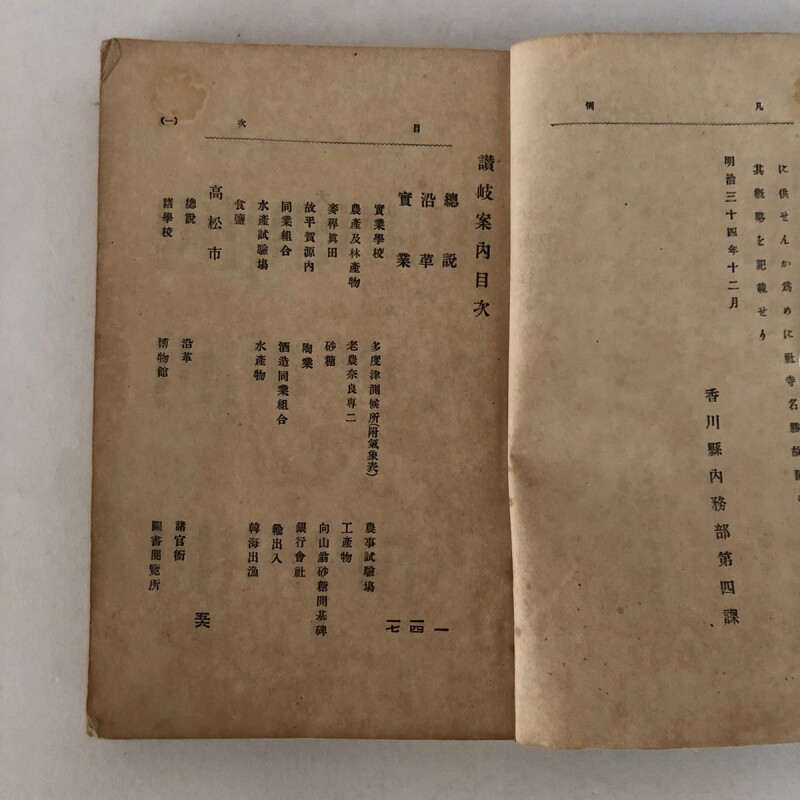 凡例
に供せんか爲めに社寺名勝
其概略を記載せり
明治三十四年十二月
香川縣內務部第四課
目次
讃岐案內目次
總說 一
沿革 一四
實業 一七
實業學校 多度津測候所(附氣象表) 農事試驗場
農產及林產物 老農奈良専二 工產物
麥稈眞田 砂糖 向山翁砂糖開基碑
故平賀源內 陶業 銀行會社
同業組合 酒造同業組合 輸出入
水產試驗場 水產物 韓海出漁
食鹽
高松市 五六
總說 沿革 諸官衙
諸學校 博物館 圖書閱覽所
(一)